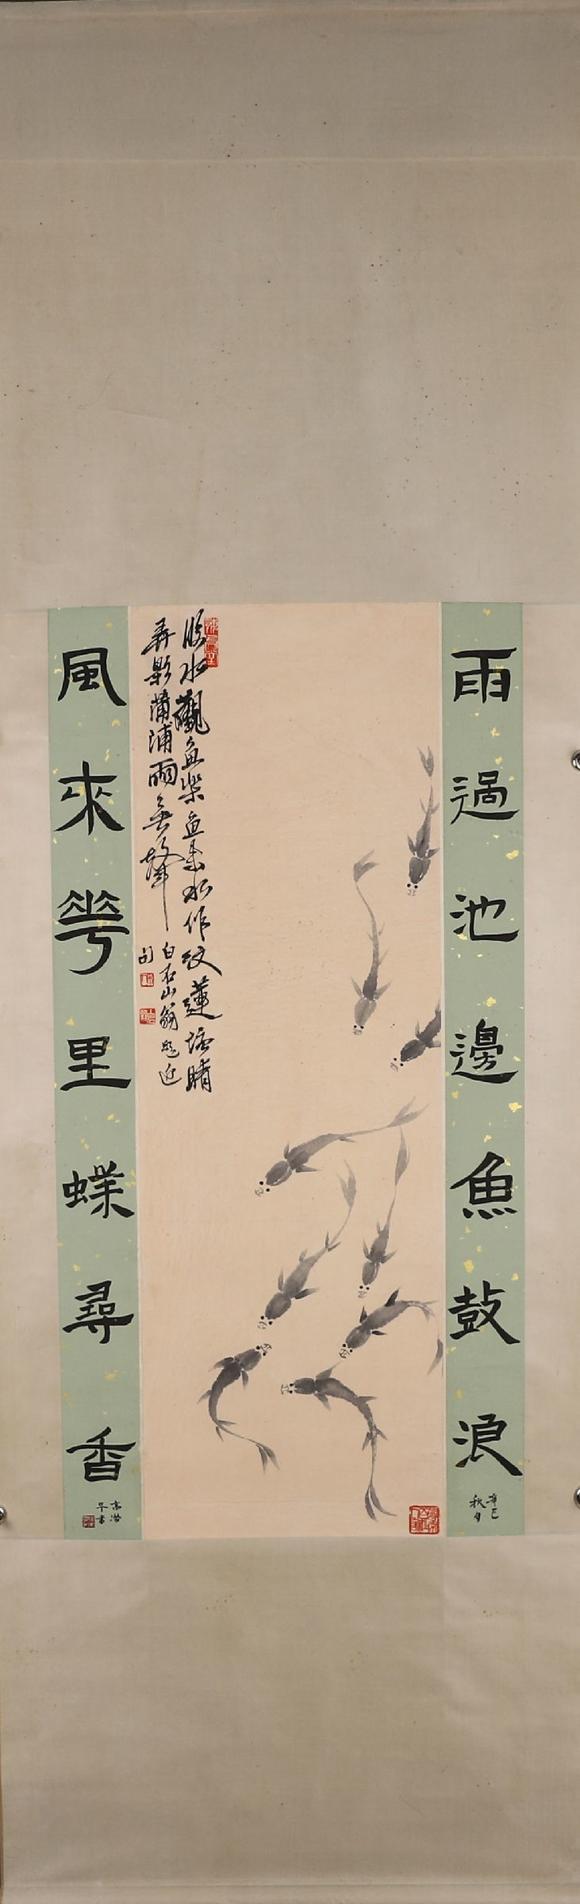 雨過池邊魚鼓浪
辛巳
秋月
臨水觀魚樂魚來水作紋蓮塘晴
弄影蒲浦雨無聲
白石山翁題近
句
風來花里蝶尋香